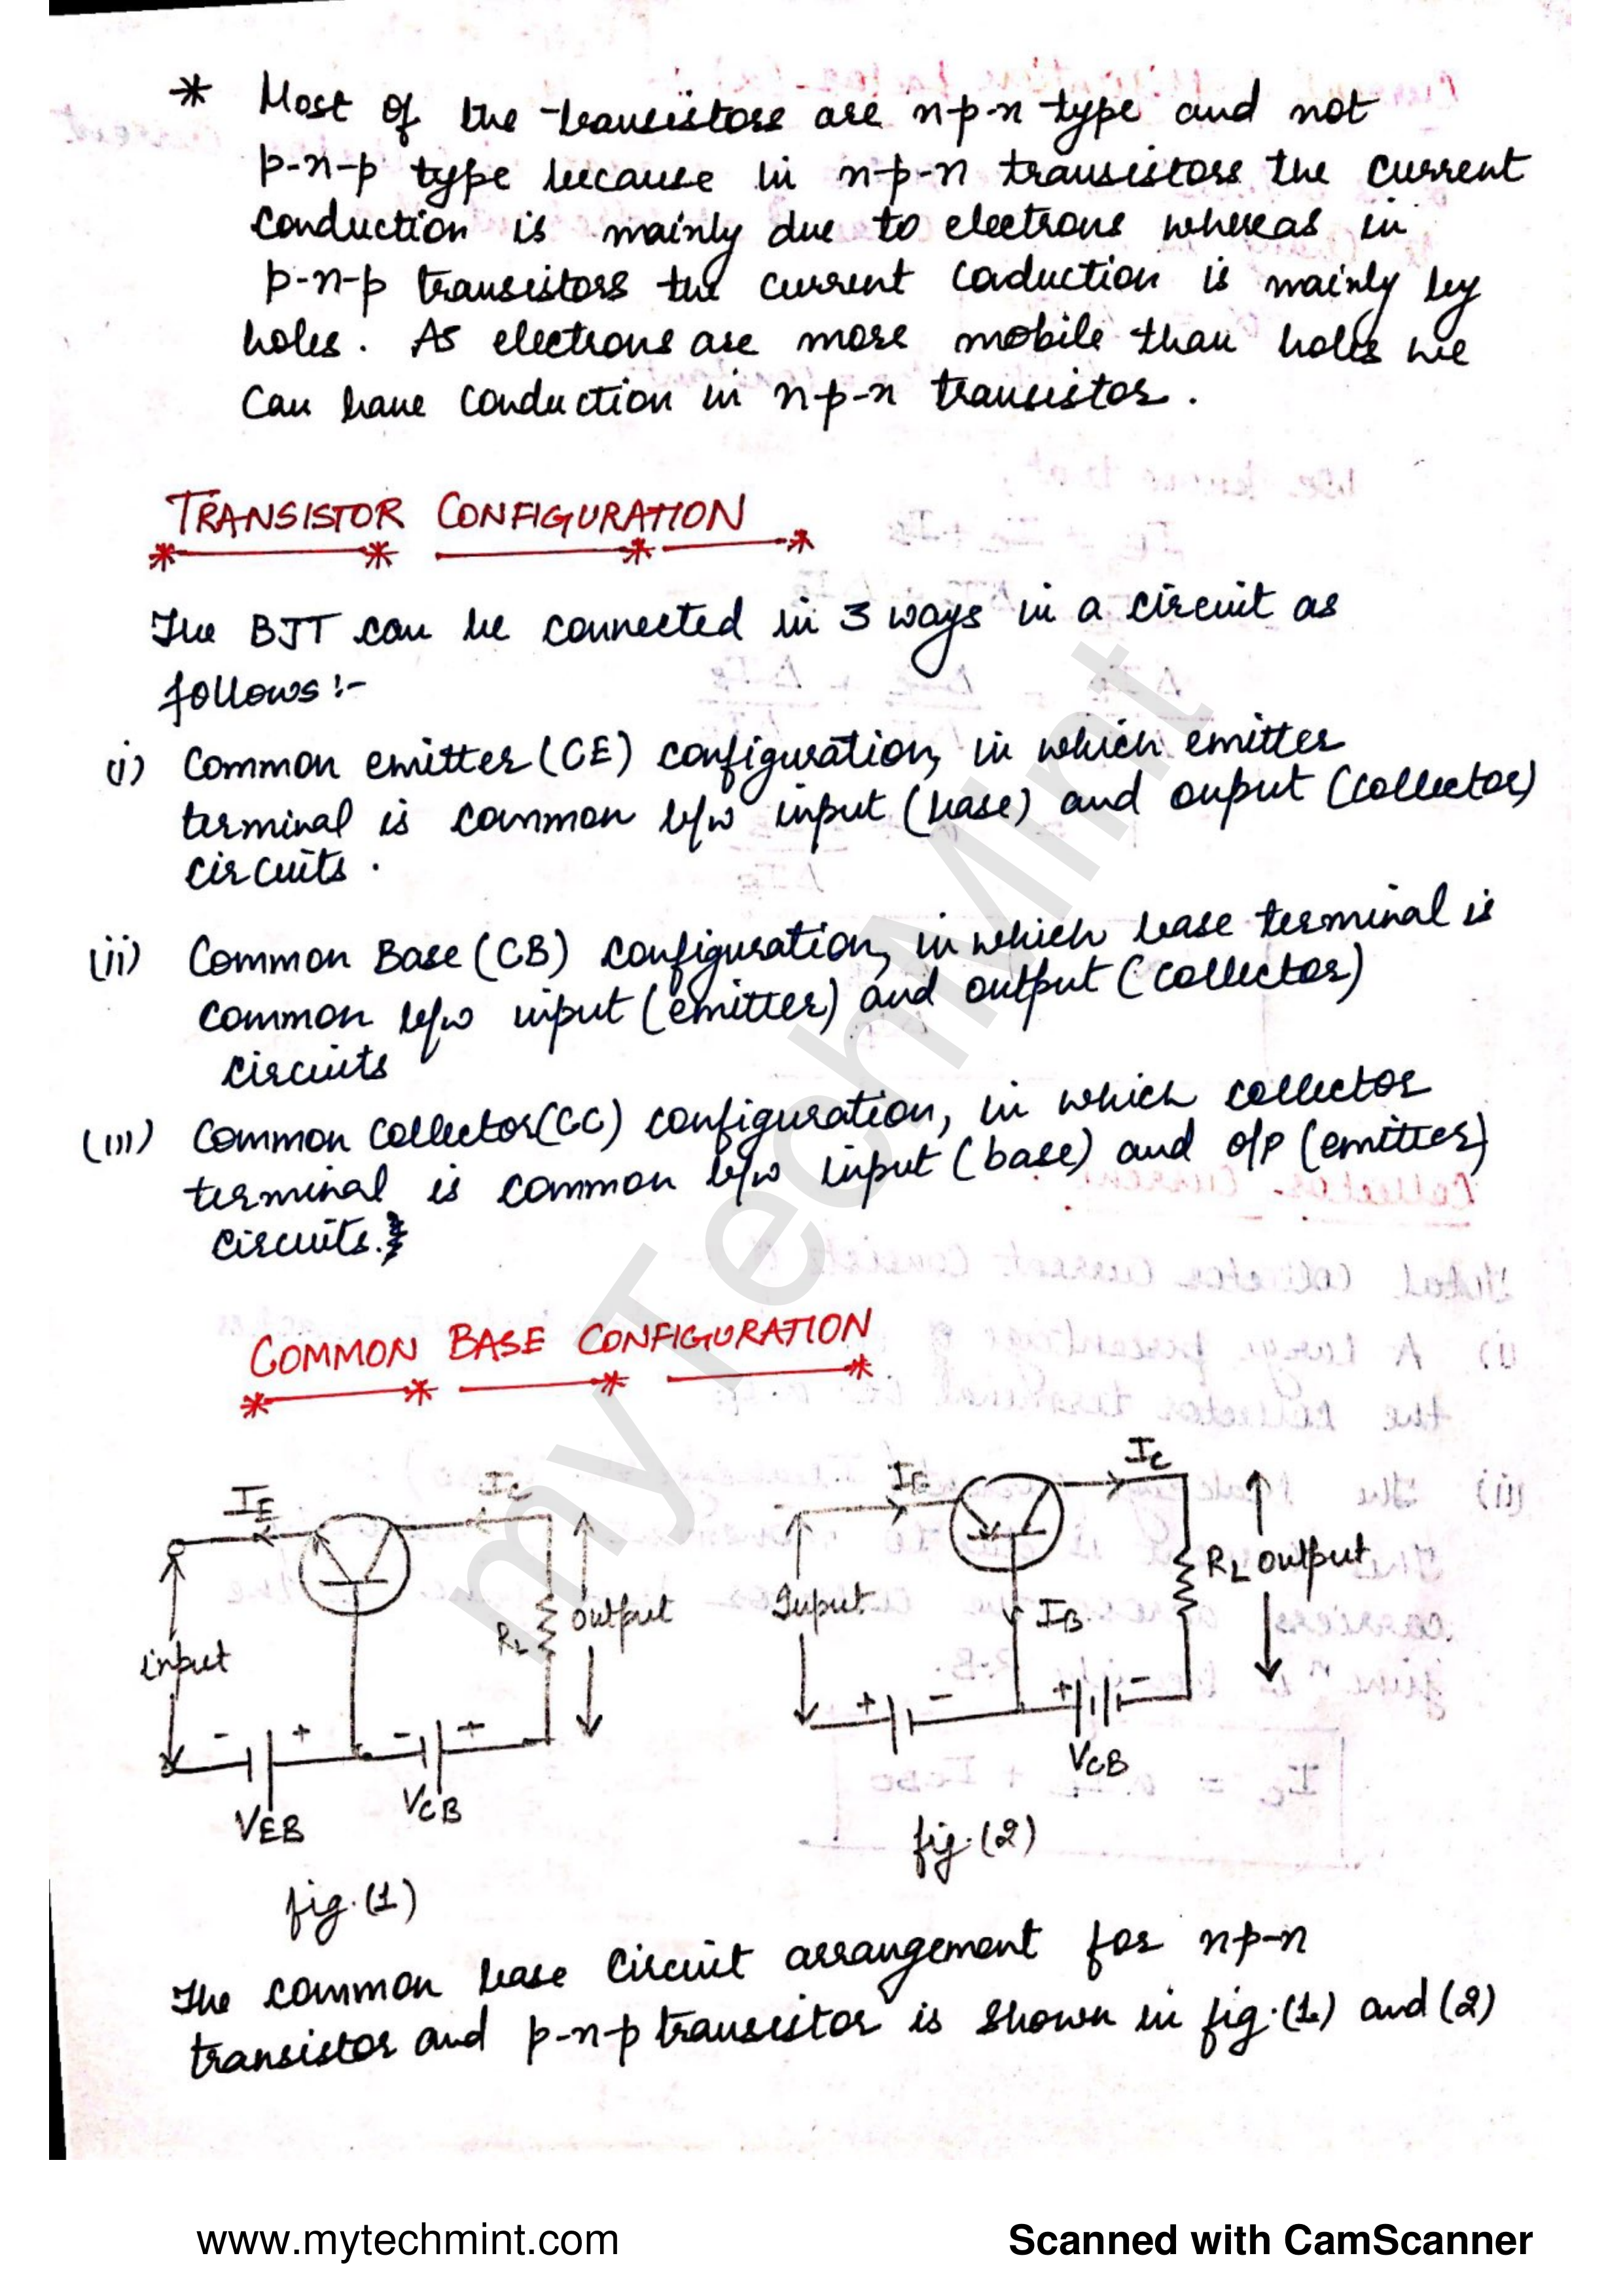 * Most of the transistors are n-p-n type and not
p-n-p type because in n-p-n transistors the current
conduction is mainly due to electrons whereas in
p-n-p transistors the current coduction is mainly by
holes. As electrons are more mobile than holes we
can have conduction in n-p-n transistor.
TRANSISTOR CONFIGURATION
The BJT can be connected in 3 ways in a circuit as
follows:-
(i) Common emitter (CE) configuration, in which emitter
terminal is common b/w input (base) and ouput (collector)
circuits.
(ii) Common Base (CB) configuration, in which base terminal is
common b/w input (emitter) and output (collector)
circuits
(iii) Common collector (CC) configuration, in which collector
terminal is common b/w input (base) and o/p (emitter)
circuits.
COMMON BASE CONFIGURATION
IE IC
input RL output
- + - +
VEB VCB
fig.(1)
IE IC
Input IB RL output
+ - + -
VCB
fig.(2)
The common base circuit arrangement for n-p-n
transistor and p-n-p transistor is shown in fig.(1) and (2)
myTechMint
www.mytechmint.com
Scanned with CamScanner